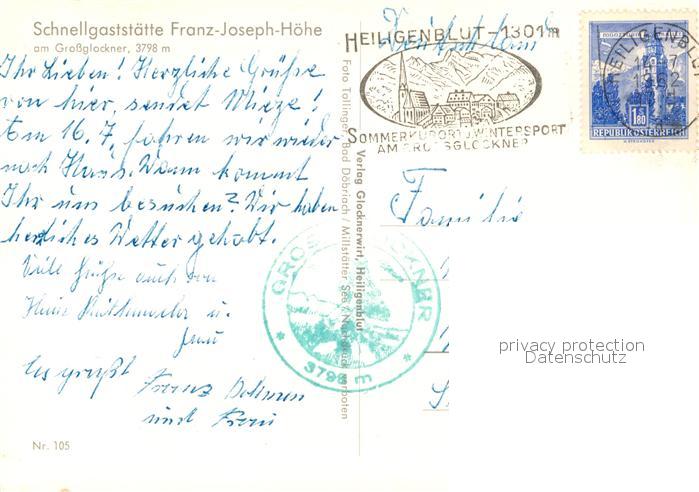 Schnellgaststätte Franz-Joseph-Höhe
am Großglockner, 3798 m
Ihr Lieben! Herzliche Grüße
von hier, sendet Mieze!
Am 16.7. fahren wir wieder
nach Haus. Wann kommt
Ihr uns besuchen? Wir haben
herrliches Wetter gehabt.
Viele Grüße auch von
Heinz u.
Frau
Es grüßt
Franz
und Frau
Nr. 105
Foto Tollinger, Bad Döbriach / Millstätter See / Nachdruck verboten
Verlag Glocknerwirt, Heiligenblut
Deutschland
HEILIGENBLUT-1301m
SOMMERKURORT U. WINTERSPORT
AM GROSSGLOCKNER
HEILIGENBLUT
1.80
REPUBLIK ÖSTERREICH
Familie
GROSSGLOCKNER
* 3798 m *
privacy protection
Datenschutz